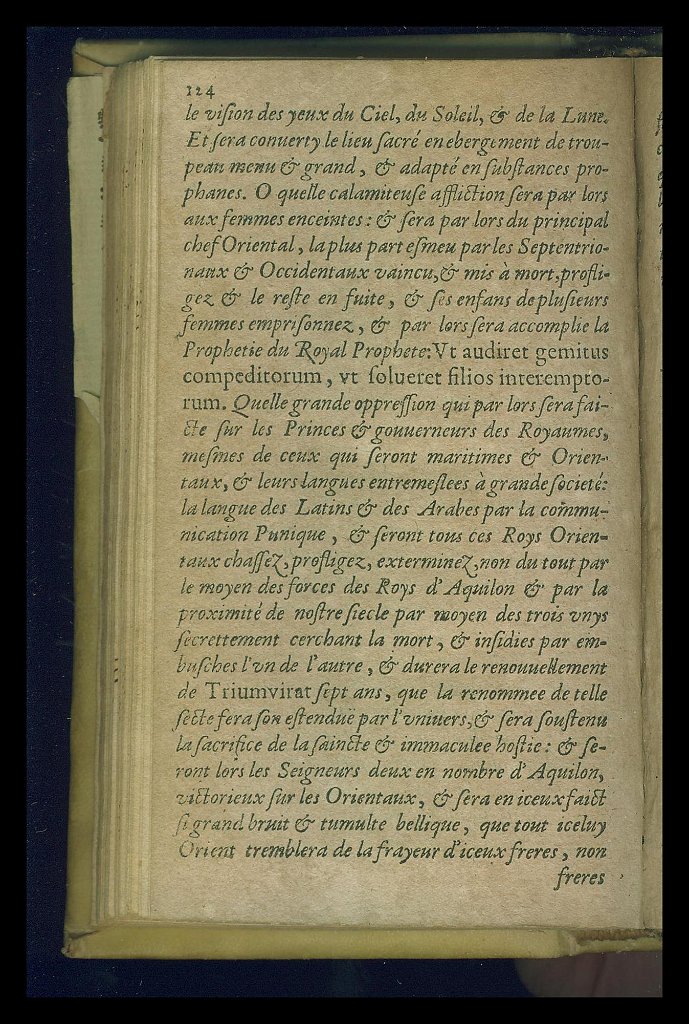 124
le viſion des yeux du Ciel, du Soleil, & de la Lune.
Et ſera conuerty le lieu ſacré en ebergement de trou-
peau menu & grand, & adapté en ſubſtances pro-
phanes. O quelle calamiteuſe affliction ſera par lors
aux femmes enceintes: & ſera par lors du principal
chef Oriental, la plus part eſmeu par les Septentrio-
naux & Occidentaux vaincu, & mis à mort, profli-
gez & le reſte en fuite, & ſes enfans de pluſieurs
femmes empriſonnez, & par lors ſera accomplie la
Prophetie du Royal Prophete: Vt audiret gemitus
compeditorum, vt ſolueret filios interempto-
rum. Quelle grande oppreſſion qui par lors ſera fai-
cte ſur les Princes & gouuerneurs des Royaumes,
meſmes de ceux qui ſeront maritimes & Orien-
taux, & leurs langues entremeſlees à grande ſocieté:
la langue des Latins & des Arabes par la commu-
nication Punique, & ſeront tous ces Roys Orien-
taux chaſſez, profligez, exterminez, non du tout par
le moyen des forces des Roys d'Aquilon & par la
proximité de noſtre ſiecle par moyen des trois vnys
ſecrettement cerchant la mort, & inſidies par em-
buſches l'vn de l'autre, & durera le renouuellement
de Triumvirat ſept ans, que la renommee de telle
ſecte fera ſon eſtenduë par l'vniuers, & ſera ſouſtenu
la ſacrifice de la ſaincte & immaculee hoſtie: & ſe-
ront lors les Seigneurs deux en nombre d'Aquilon,
victorieux ſur les Orientaux, & ſera en iceux faict
ſi grand bruit & tumulte bellique, que tout iceluy
Orient tremblera de la frayeur d'iceux freres, non
freres